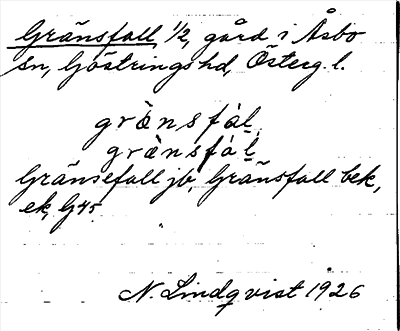 Gränsfall 1/2, gård i Åsbo
sn, Göstrings hd, Österg. l.
grä̀nsfál
grä̀nsfàl
Gränsefall jb, Gränsfall bek,
ek, G45
N. Lindqvist 1926